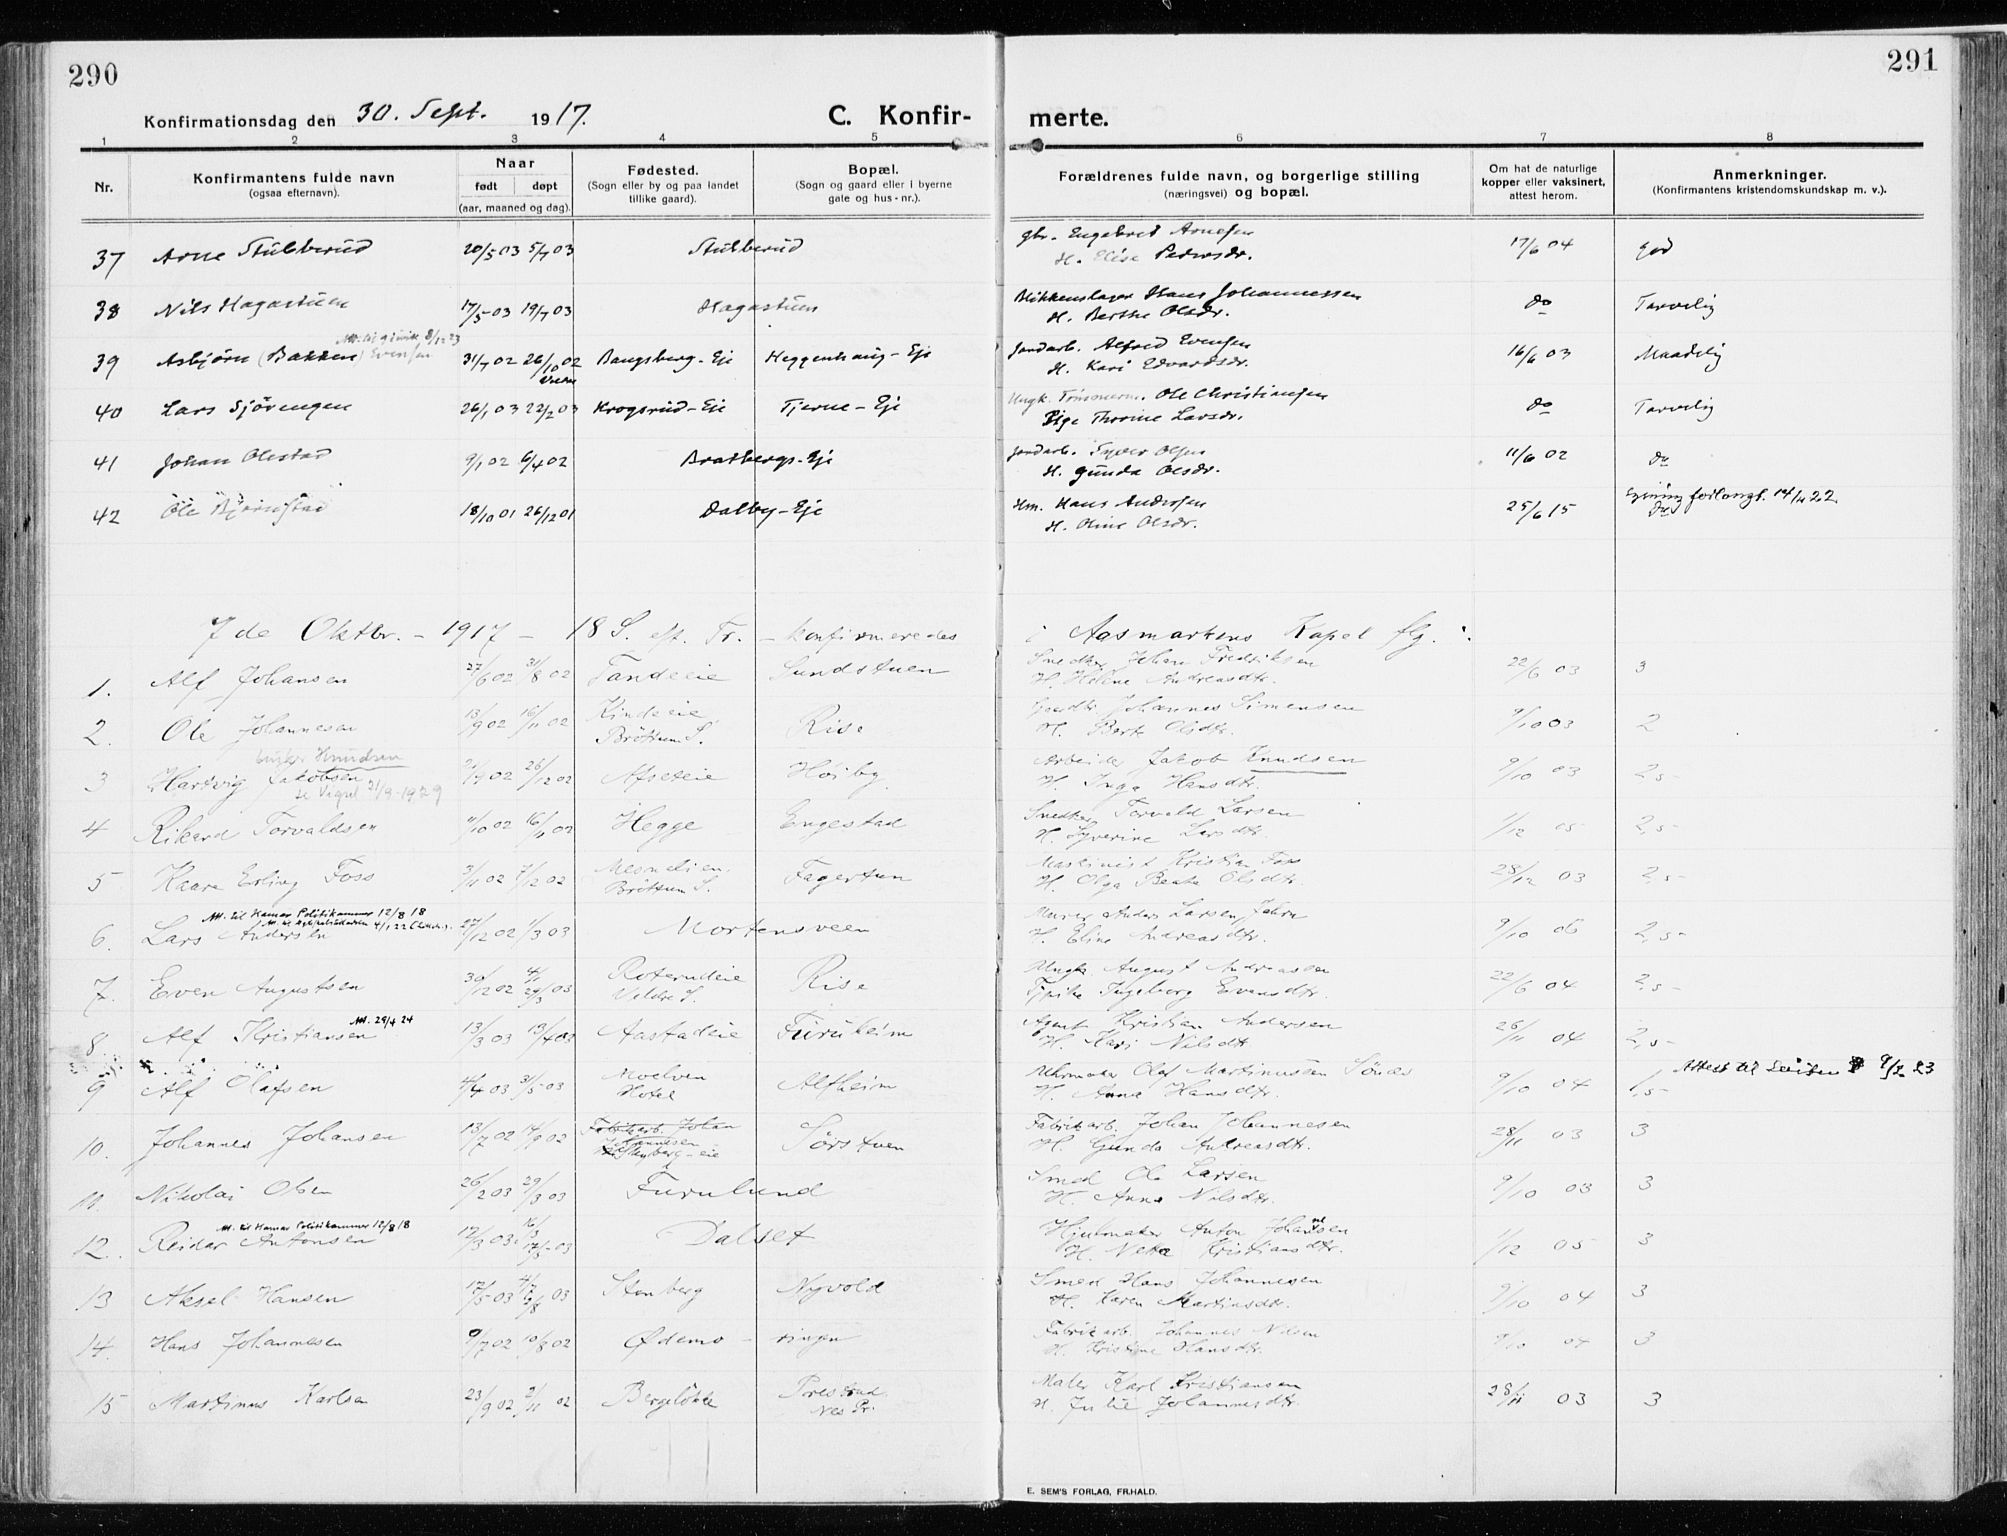 290
291
Konfirmationsdag den 30. Sept. 1917.
C. Konfir-
merte.
1 2 3 4 5 6 7 8
Nr.
Konfirmantens fulde navn
(ogsaa efternavn).
Naar
født døpt
(aar, maaned og dag).
Fødested.
(Sogn eller by og paa landet
tillike gaard).
Bopæl.
(Sogn og gaard eller i byerne
gate og hus-nr.).
Forældrenes fulde navn, og borgerlige stilling
(næringsvei) og bopæl.
Om hat de naturlige
kopper eller vaksinert,
attest herom.
Anmerkninger.
(Konfirmantens kristendomskundskap m. v.).
gbr. Engebret Arnesen
37 Arne Stubberud 20/5 03 5/7 03 Stubberud 17/6 04 god
H. Elise Pedersdr.
Blikkenslager Hans Johannessen
38 Nils Hagastuen 17/5 03 19/7 03 Hagastuen do Tarvelig
H. Berthe Olsdr.
Jordarb. Alfred Evensen
39 Asbjørn (Bakken) Evensen 31/7 02 26/10 02 Bangsberg-Eje Heggenhaug-Eje 16/6 03 Maadelig
H. Kari Edvardsdr.
Ungk. Tømmerm. Ole Christiansen
40 Lars Sjøvengen 26/1 03 22/2 03 Krogsrud-Eje Tjerne-Eje do Tarvelig
Pige Thorine Larsdr.
41 Johan Olestad 9/1 02 6/4 02 Bratbergs-Eje 11/6 02 do
H. Gunda Olsdr.
Hm. Hans Andersen
42 Ole Bjørnstad 18/10 01 26/12 01 Dalby-Eje 25/6 15 do
H. Oline Olsdr.
7de Oktbr. - 1917 - 18 S. eft. Tr. - konfirmeredes i Aasmarkens Kapel flg.:
Snedker Johan Fredriksen
1. Alf Johansen 27/6 02 31/8 02 Tandeeie Sundstuen 22/6 03 3
H. Helene Andreasdtr.
Johannes Simensen
2. Ole Johannesen 13/9 02 16/11 02 Kindeeie Brøttum S. Rise 9/10 03 2
H. Berte Olsdtr.
Knudsen
Arbeider Jakob Knudsen
3 Hartvig Jakobsen 26/12 02 Afseteie Høiby 9/10 03 2,5
H. Inga Hansdtr.
Snedker Torvald Larsen
4 Rikard Torvaldsen 11/10 02 16/11 02 Hegge Engestad 1/12 05 2,5
H. Syverine Larsdtr.
Maskinist Kristian Foss
5 Kaare Erling Foss 3/11 02 7/12 02 Mesnalien. Brøttum S. Fagertun 28/12 03 2,5
H. Olga Beate Olsdtr.
Att. til Hamar Politikammer 12/8 18
Murer Anders Larsen
6. Lars Andersen 27/12 02 1/3 03 Mortensveen 9/10 06 2,5
H. Eline Andreasdtr.
Ungk. August Andreassen
7. Even Augustsen 30/12 02 29/3 03 Roterudeie Veldre S. Rise 22/6 04 2,5
Pike Ingeborg Evensdtr.
Att. 29/4 24
Agent Kristian Andersen
8. Alf Kristiansen 13/3 03 13/4 03 Aastadeie Furuheim 26/11 04 2,5
H. Kari Nilsdtr.
Uhrmaker Olaf Martinussen
9 Alf Olafsen 4/4 03 31/5 03 Moelven Hotel Alfheim 9/10 04 1,5
H. Anna Hansdtr.
Fabrikarb. Johan Johannesen
10. Johannes Johansen 13/7 02 14/9 02 Fabrikarb. Johan Johannesen Sørstuen 28/11 03 3
H. Gunda Andreasdtr.
Smed Ole Larsen
11. Nikolai Olsen 26/2 03 29/3 03 Furulund 9/10 03 3
H. Anne Nilsdtr.
Att. til Hamar Politikammer 12/8 18
Hjulmaker Anton Johansen
12. Reidar Antonsen 12/3 03 17/5 03 Dalset 1/12 05 3
H. Netta Kristiansdtr.
Smed Hans Johannesen
13 Aksel Hansen 17/5 03 Stenberg Nyvold 9/10 04 3
H. Karen Martinsdtr.
Fabrikarb. Johannes Nilsen
14. Hans Johannesen 9/7 02 10/8 02 Ødemo-ringen 9/10 04 3
H. Kristine Hansdtr.
Maler Karl Kristiansen
15 Martinus Karlsen 23/9 02 2/11 02 Bergeløkke Nes Pr. 28/11 03 3
H. Julie Johannesdtr.
E. SEM'S FORLAG, FR.HALD.